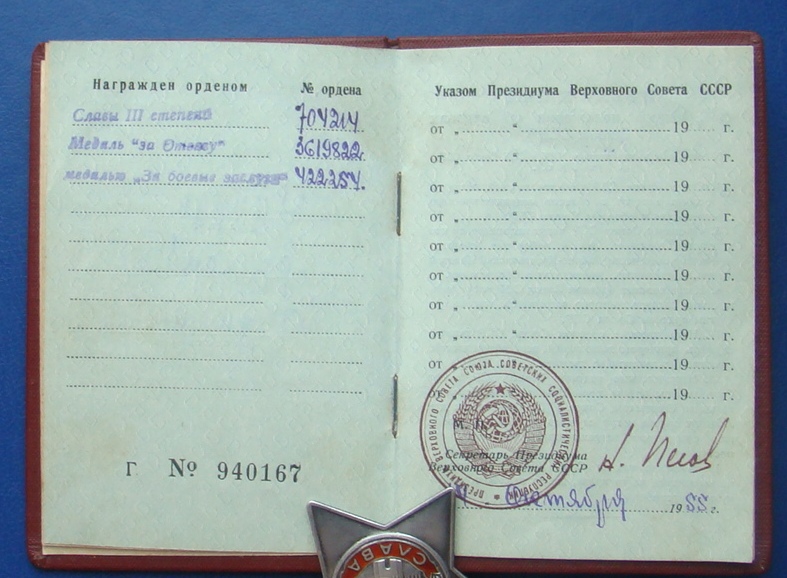 Награжден орденом № ордена
Славы III степени 704214
Медаль "за Отвагу" 3619822
медалью „За боевые заслуги" 422254.
Г № 940167
Указом Президиума Верховного Совета СССР
от „ “ 19 г.
от „ “ 19 г.
от „ “ 19 г.
от „ “ 19 г.
от „ “ 19 г.
от „ “ 19 г.
от „ “ 19 г.
от „ “ 19 г.
от 19 г.
19 г.
ПРЕЗИДИУМ ВЕРХОВНОГО СОВЕТА СОЮЗА СОВЕТСКИХ СОЦИАЛИСТИЧЕСКИХ РЕСПУБЛИК
Секретарь Президиума
Верховного Совета СССР
Н. Пегов
октября 1955 г.
СЛАВА